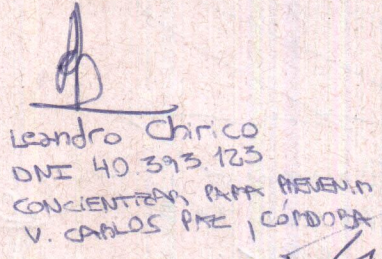 Leandro Chirico
DNI 40.393.123
CONCIENTIZAR PARA PREVENIR
V. CARLOS PAZ, CÓRDOBA